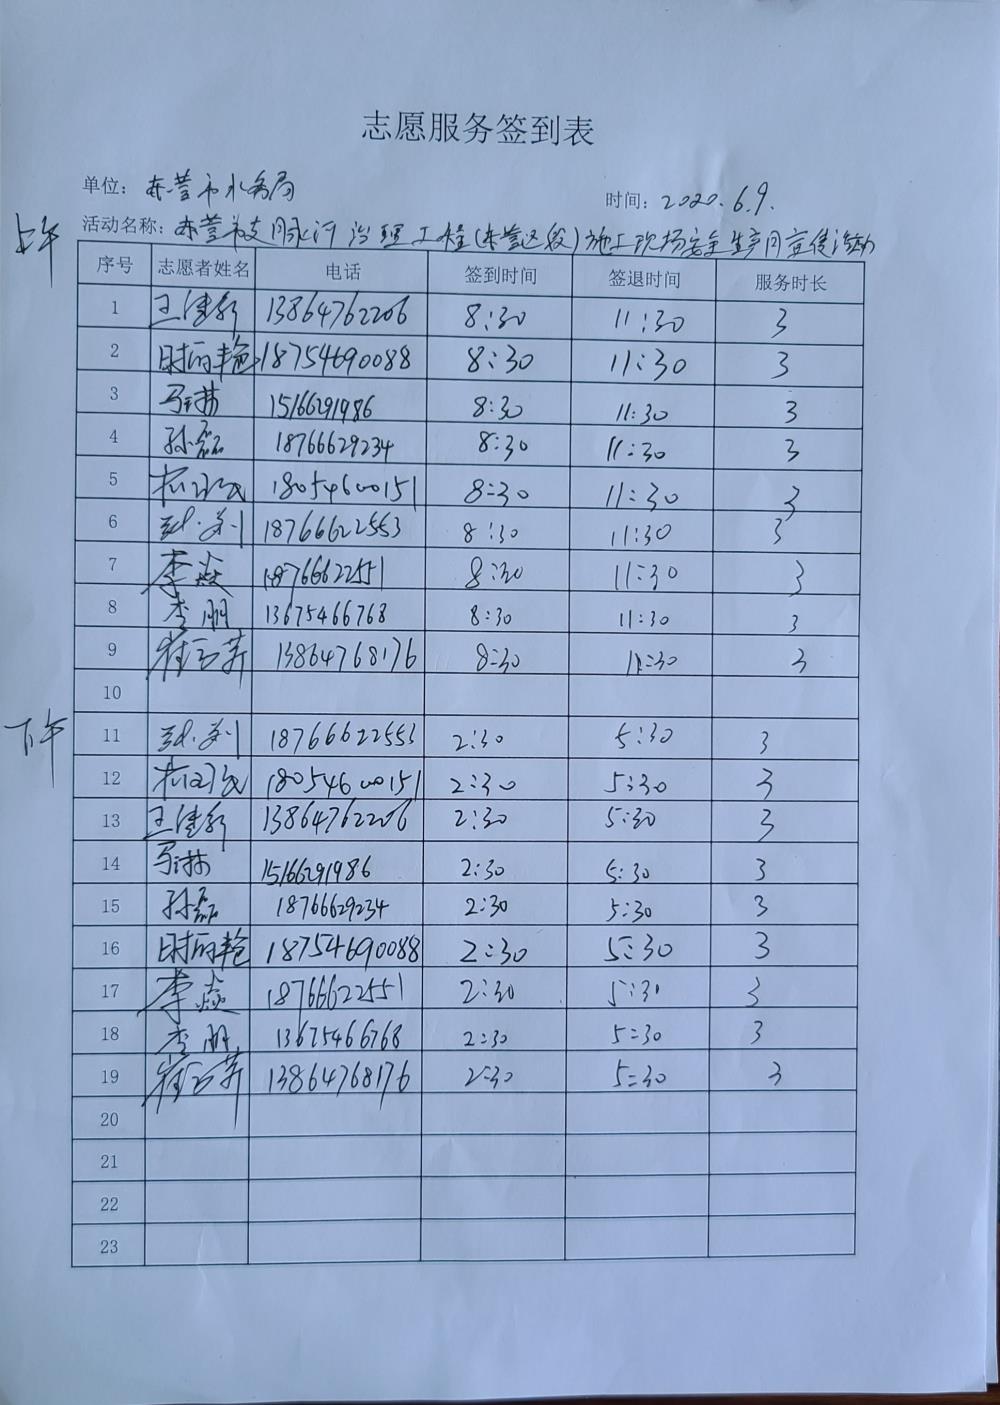 志愿服务签到表
单位: 东营市水务局
时间: 2020.6.9.
上午
活动名称: 东营市支脉河治理工程(东营区段)施工现场安全生产月宣传活动
序号 志愿者姓名 电话 签到时间 签退时间 服务时长
1 13864762206 8:30 11:30 3
2 时丽艳 18754690088 8:30 11:30 3
3 马琳 15166291986 8:30 11:30 3
4 孙磊 18766629234 8:30 11:30 3
5 18054600151 8:30 11:30 3
6 18766622553 8:30 11:30 3
7 李焱 18766622551 8:30 11:30 3
8 李朋 13675466768 8:30 11:30 3
9 崔云英 13864768176 8:30 11:30 3
10
下午
11 18766622553 2:30 5:30 3
12 18054600151 2:30 5:30 3
13 13864762206 2:30 5:30 3
14 马琳 15166291986 2:30 5:30 3
15 孙磊 18766629234 2:30 5:30 3
16 时丽艳 18754690088 2:30 5:30 3
17 李焱 18766622551 2:30 5:30 3
18 李朋 13675466768 2:30 5:30 3
19 崔云英 13864768176 2:30 5:30 3
20
21
22
23